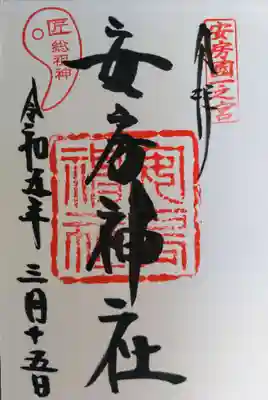 安房國一之宮
奉拝
安房神社
安房神社
匠総祖神
令和五年三月十五日